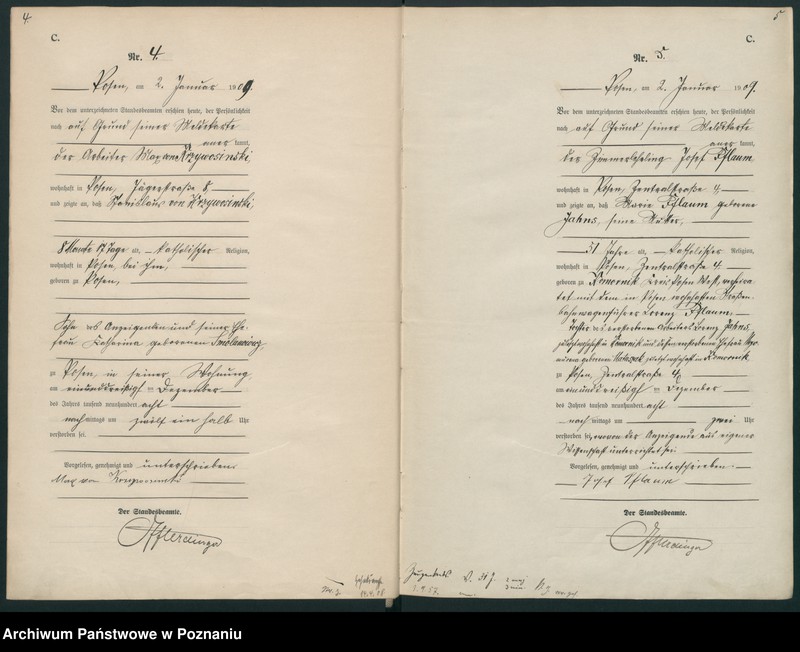 4.
C.
Nr. 4.
Posen, am 2. Januar 1909.
Vor dem unterzeichneten Standesbeamten erschien heute, der Persönlichkeit
nach auf Grund seiner Meldekarte
anerkannt,
der Arbeiter Max von Krzywosinski
wohnhaft in Posen, Jägerstraße 8
und zeigte an, daß Stanislaus von Krzywosinski,
8 Monate 17 Tage alt, katholischer Religion,
wohnhaft in Posen bei ihm,
geboren zu Posen,
Sohn des Anzeigenden und seiner Ehe-
frau Katharina geborenen
zu Posen, in seiner Wohnung
am einunddreißigsten Dezember
des Jahres tausend neunhundert acht
nachmittags um zwölf ein halb Uhr
verstorben sei.
Vorgelesen, genehmigt und unterschrieben.
Max von
Der Standesbeamte.
5
C.
Nr. 5.
Posen, am 2. Januar 1909.
Vor dem unterzeichneten Standesbeamten erschien heute, der Persönlichkeit
nach auf Grund seiner Meldekarte
anerkannt,
der Zimmerlehrling Josef Pflaum
wohnhaft in Posen, Zentralstraße 4,
und zeigte an, daß Marie Pflaum geborene
Jahns, seine Mutter,
51 Jahre alt, katholischer Religion,
wohnhaft in Posen, Zentralstraße 4
geboren zu Kreis Posen West, verheira-
tet mit dem in Posen wohnhaften Straßen-
bahnwagenführer Lorenz Pflaum,
Tochter des verstorbenen Arbeiters Lorenz Jahns
zuletzt wohnhaft in und dessen verstorbener Ehefrau
geborenen zuletzt wohnhaft in
zu Posen, Zentralstraße 4,
am einunddreißigsten Dezember
des Jahres tausend neunhundert acht
nachmittags um zwei Uhr
verstorben sei, wovon der Anzeigende aus eigener
Wissenschaft unterrichtet sei.
Vorgelesen, genehmigt und unterschrieben.
Josef Pflaum
Der Standesbeamte.
Archiwum Państwowe w Poznaniu